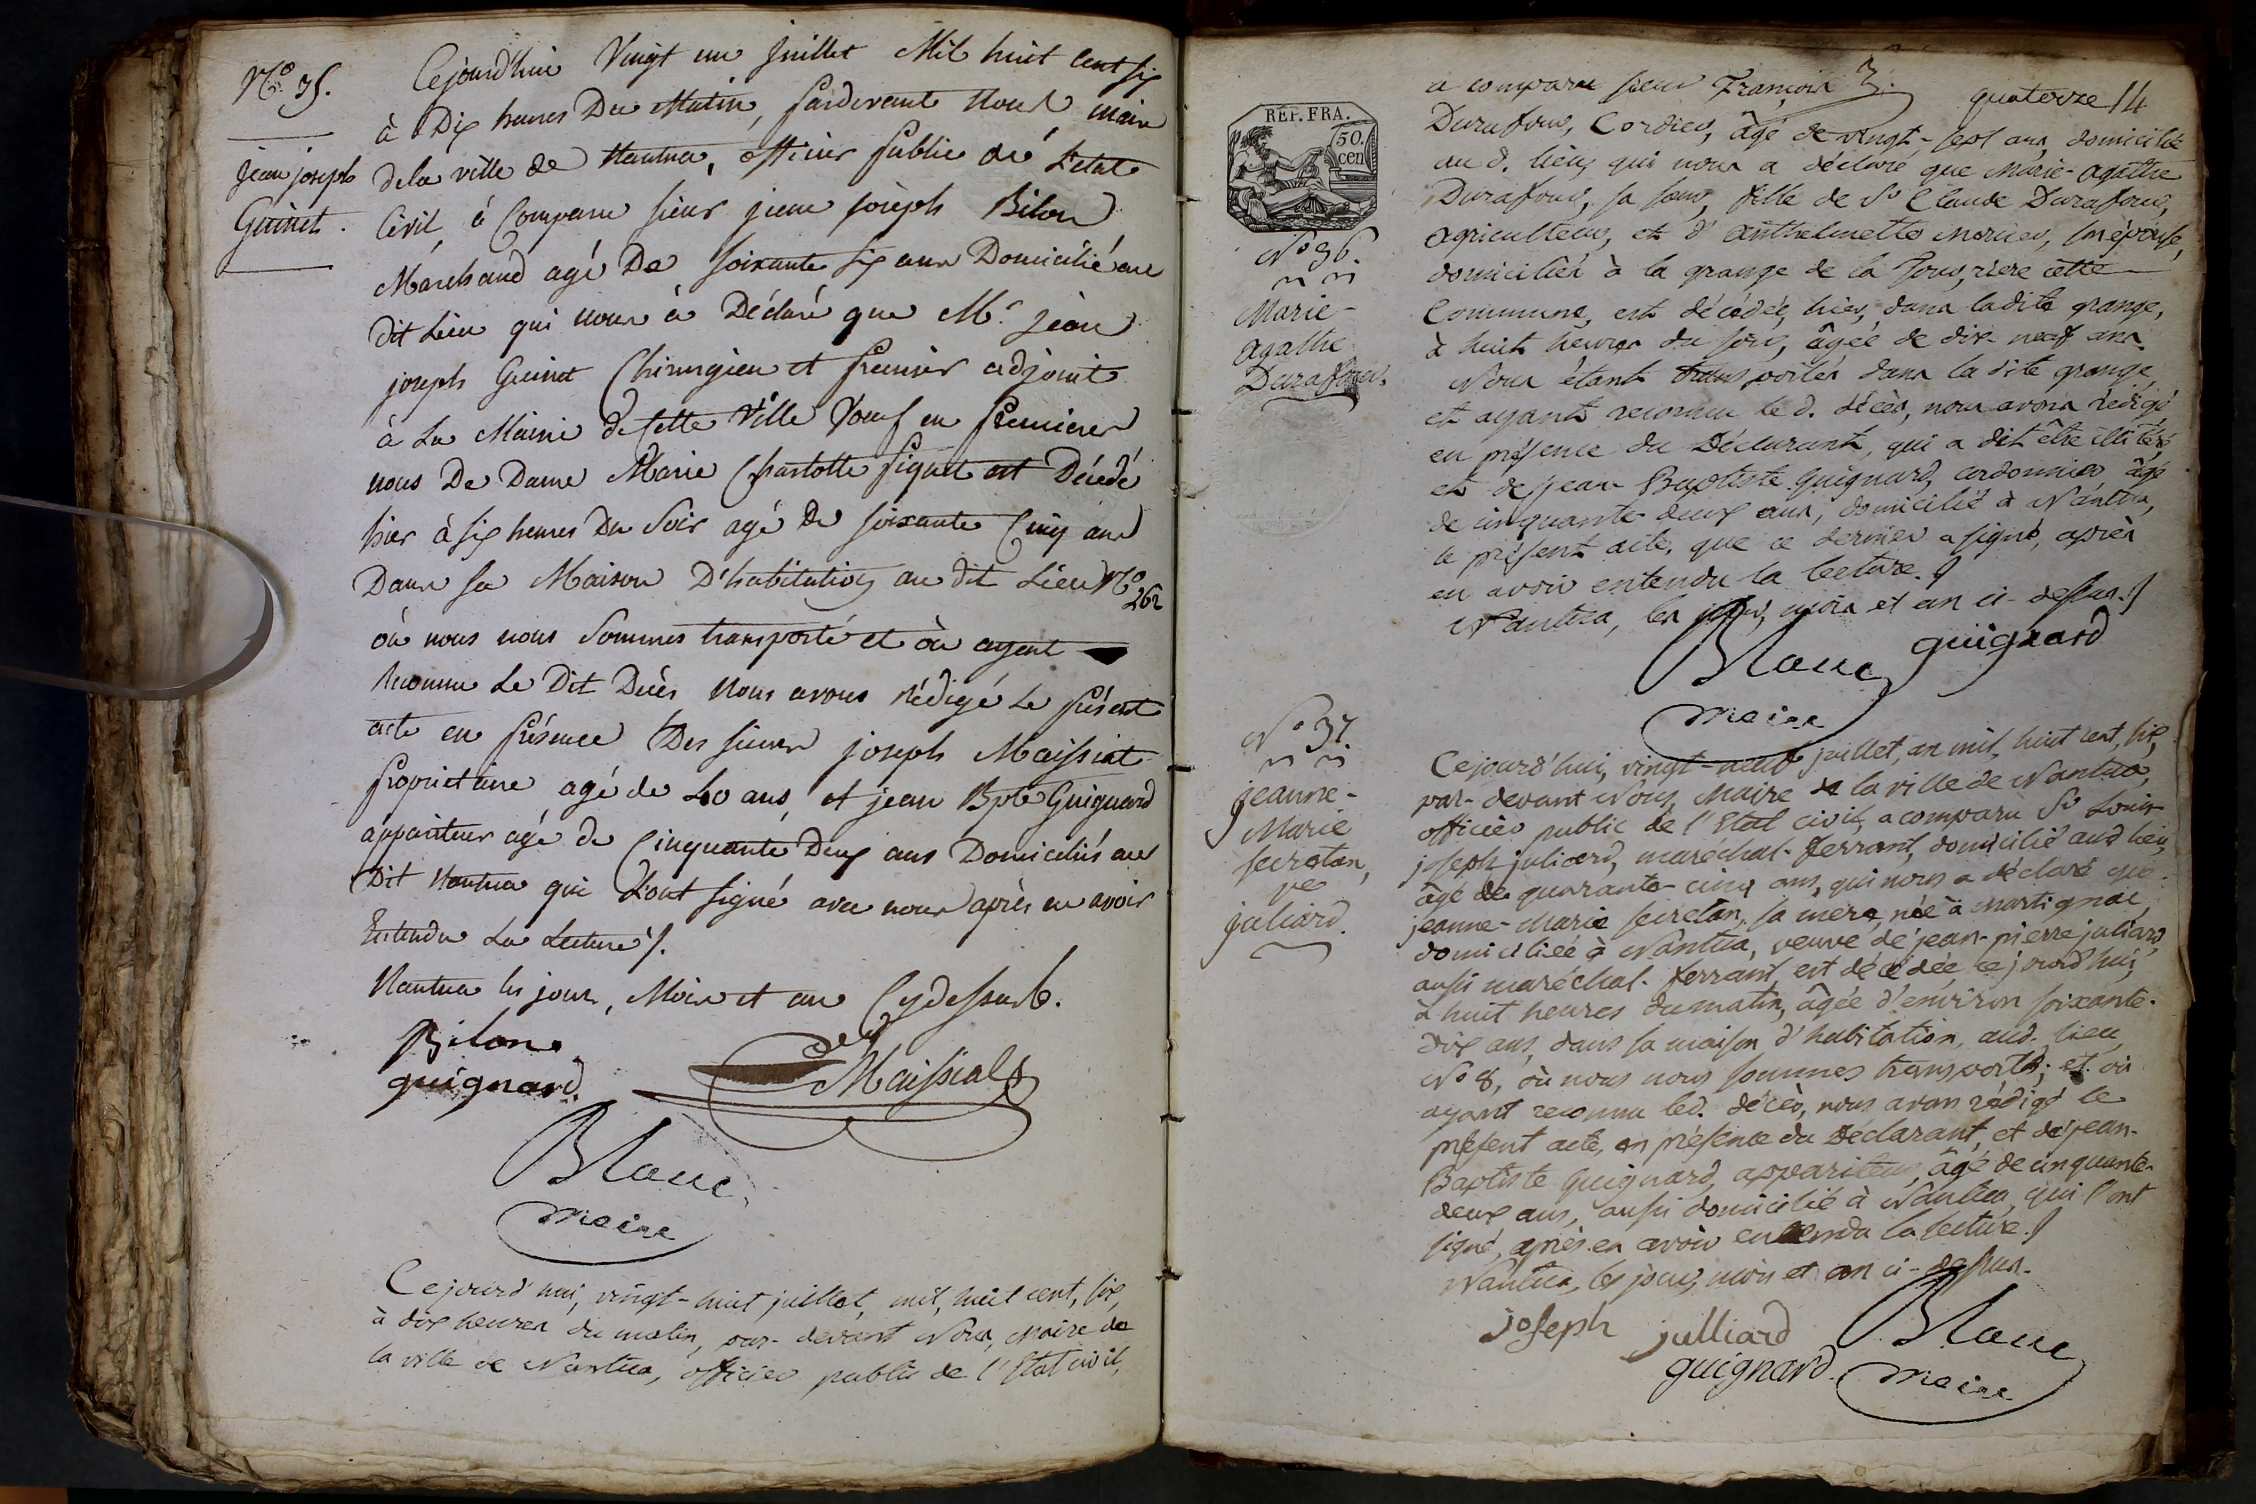 N.º 35.
jean joseph
Guinet.
Cejourd'hui Vingt un Juillet Mil huit Cent six
à Dix heures Du Matin, Pardevant Nous maire
dela ville de Nantua, officier Public de L'etat
Civil, à Comparu sieur jean joseph Bilon
Marchand agé De soixante six ans Domicilié au
dit Lieu qui nous à Déclaré que Mr. jean
joseph Guinet Chirurgien et Premier adjoint
à La Mairie de Cette Ville Veuf en Premieres
nous De Dame Marie Charlotte Piquet est Décédé
hier à six heures Du Soir agé De soixante Cinq ans
Dans sa Maison D'habitation au dit Lieu Nº 262
où nous nous Sommes transporté et où ayent
Reconnu Le Dit Décès Nous avons rédigé Le Présent
acte en Présence Des sieurs joseph Maissiat
Proprietaire agé de 40 ans, et jean Bpte Guignard
appariteur agé de Cinquante Deux ans Domiciliés au
Dit Nantua qui L'ont signé avec nous après en avoir
Entendu La Lecture /.
Nantua les jour, Mois et an Cydessus.
Bilon
guignard.
Maissiat
Blanc
maire
Cejourd'hui, vingt-huit juillet, mil, huit cent, six,
à dix heures du matin, par-devant Nous, Maire de
la ville de Nantua, officier public de l'Etat civil,
quatorze 14
REP. FRA.
50.
cen
Nº 36.
Marie-
Agathe
Durafour.
a comparu sieur François
Durafour, Cordier, âgé de vingt-sept ans, domicilié
au d. lieu, qui nous a déclaré que Marie-Agathe
Durafour, sa sœur, fille de Sr Claude Durafour,
agriculteur, et d' Anthelmette Mercier, son épouse,
domiciliés à la grange de la Tour, riere cette
Commune, est décédée, hier, dans ladite grange,
à huit heures du soir, âgée de dix-neuf ans.
Nous étant transportés dans la dite grange,
et ayant reconnu le d. décès, nous avons rédigé
en présence du Déclarant, qui a dit être illitéré,
et de jean Baptiste Guignard, cordonnier âgé
de cinquante deux ans, domicilié à Nantua,
le présent acte, que ce dernier a signé, après
en avoir entendu la lecture./
Nantua, les jour, mois et an ci-dessus./
Blanc guignard
maire
Nº 37.
jeanne-
Marie
secretan,
ve
juliard.
Cejourd'hui, vingt-neuf juillet, an mil, huit cent, six,
par-devant Nous, Maire de la ville de Nantua,
officier public de l'Etat civil, a comparu Sr Louis
joseph juliard, maréchal-ferrant, domicilié aud. lieu,
âgé de quarante-cinq ans, qui nous a déclaré que
jeanne-Marie secretan, sa mere, née à Martignac,
domiciliée à Nantua, veuve de jean-pierre juliard,
aussi maréchal-ferrant, est décédée, cejourd'hui,
à huit heures du matin, âgée d'environ soixante-
dix ans, dans sa maison d'habitation, aud. lieu,
Nº 8, où nous nous sommes transportés; et où
ayant reconnu led. décès, nous avons rédigé le
présent acte, en présence du Déclarant, et de jean-
Baptiste Guignard, appariteur, âgé de cinquante-
deux ans, aussi domicilié à Nantua, qui l'ont
signé, après en avoir entendu la lecture./
Nantua, les jour, mois et an ci-dessus.
joseph julliard Blanc
guignard. maire